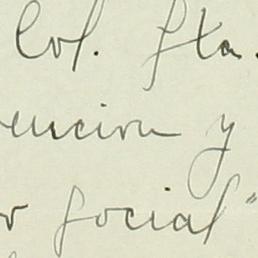 Col. Sta.
vencion y
r Social"